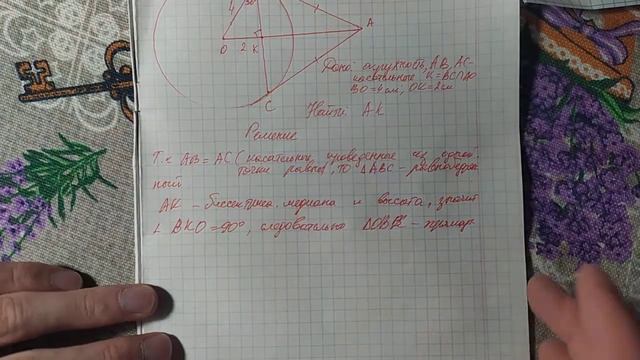 4
30°
O 2 K
A
C
Дано: окружность, AB, AC-
касательные K = BC∩AO
BO = 4 см, OK = 2 см
Найти: AK
Решение
Т.к AB = AC (касательные проведенные из одной
точки равны), то △ABC - равнобедрен
ный
AK - биссектриса, медиана и высота, значит
∠ BKO = 90°, следовательно - прямоуг